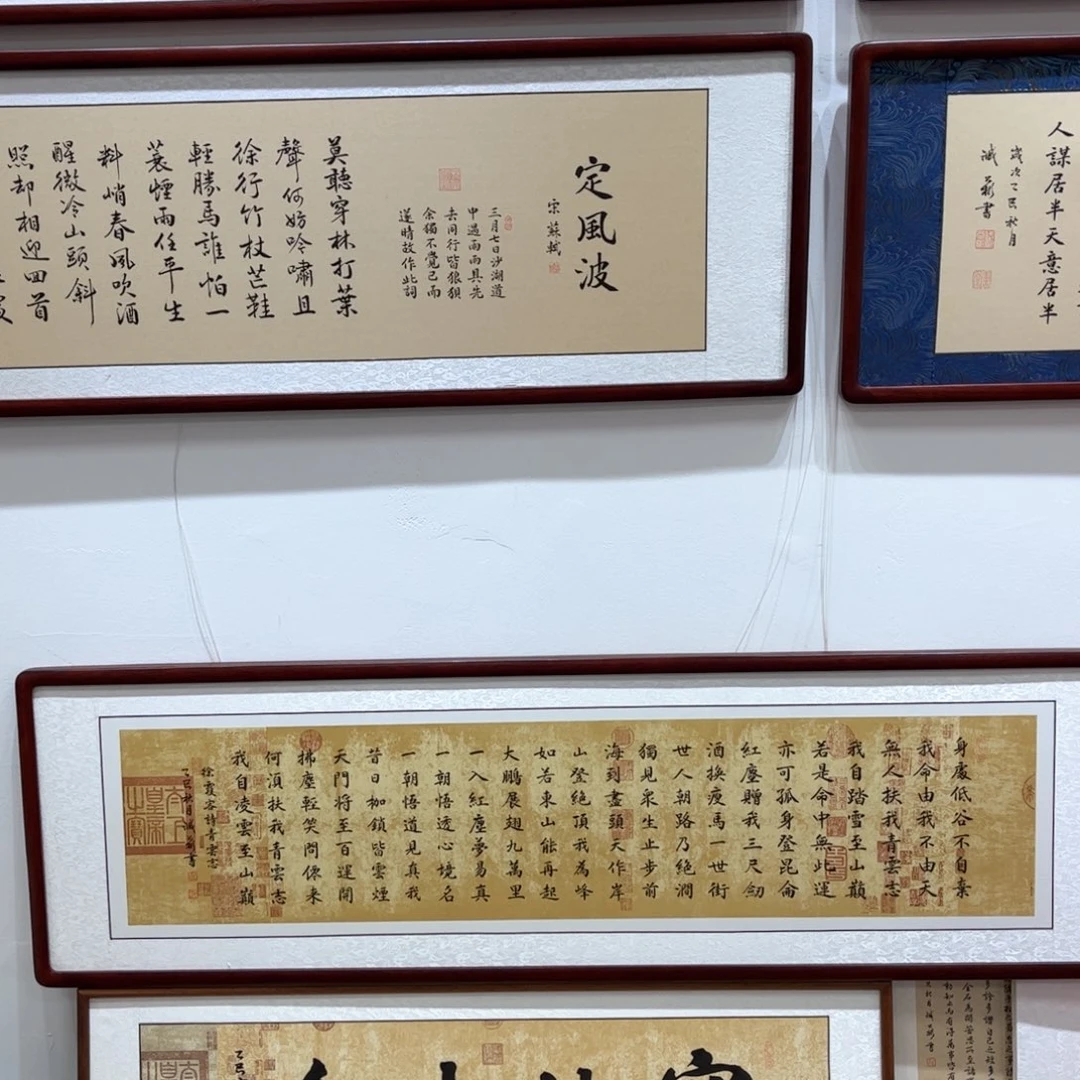 定風波
宋 蘇軾
三月七日沙湖道
中遇雨雨具先
去同行皆狼狽
余獨不覺已而
遂晴故作此詞
莫聽穿林打葉
聲何妨吟嘯且
徐行竹杖芒鞋
輕勝馬誰怕一
蓑煙雨任平生
料峭春風吹酒
醒微冷山頭斜
照却相迎回首
人謀居半天意居半
歲次乙巳秋月
書
身處低谷不自棄
我命由我不由天
無人扶我青雲志
我自踏雪至山巔
若是命中無此運
亦可孤身登昆侖
紅塵贈我三尺劍
酒換瘦馬一世街
世人朝路乃絕澗
獨見眾生止步前
海到盡頭天作岸
山登絕頂我為峰
如若東山能再起
大鵬展翅九萬里
一入紅塵夢易真
一朝悟透心境名
一朝悟道見真我
昔日枷鎖皆雲煙
天門將至百運開
拂塵輕笑問來
何須扶我青雲志
我自凌雲至山巔
徐霞客詩青雲志
乙巳秋月 書